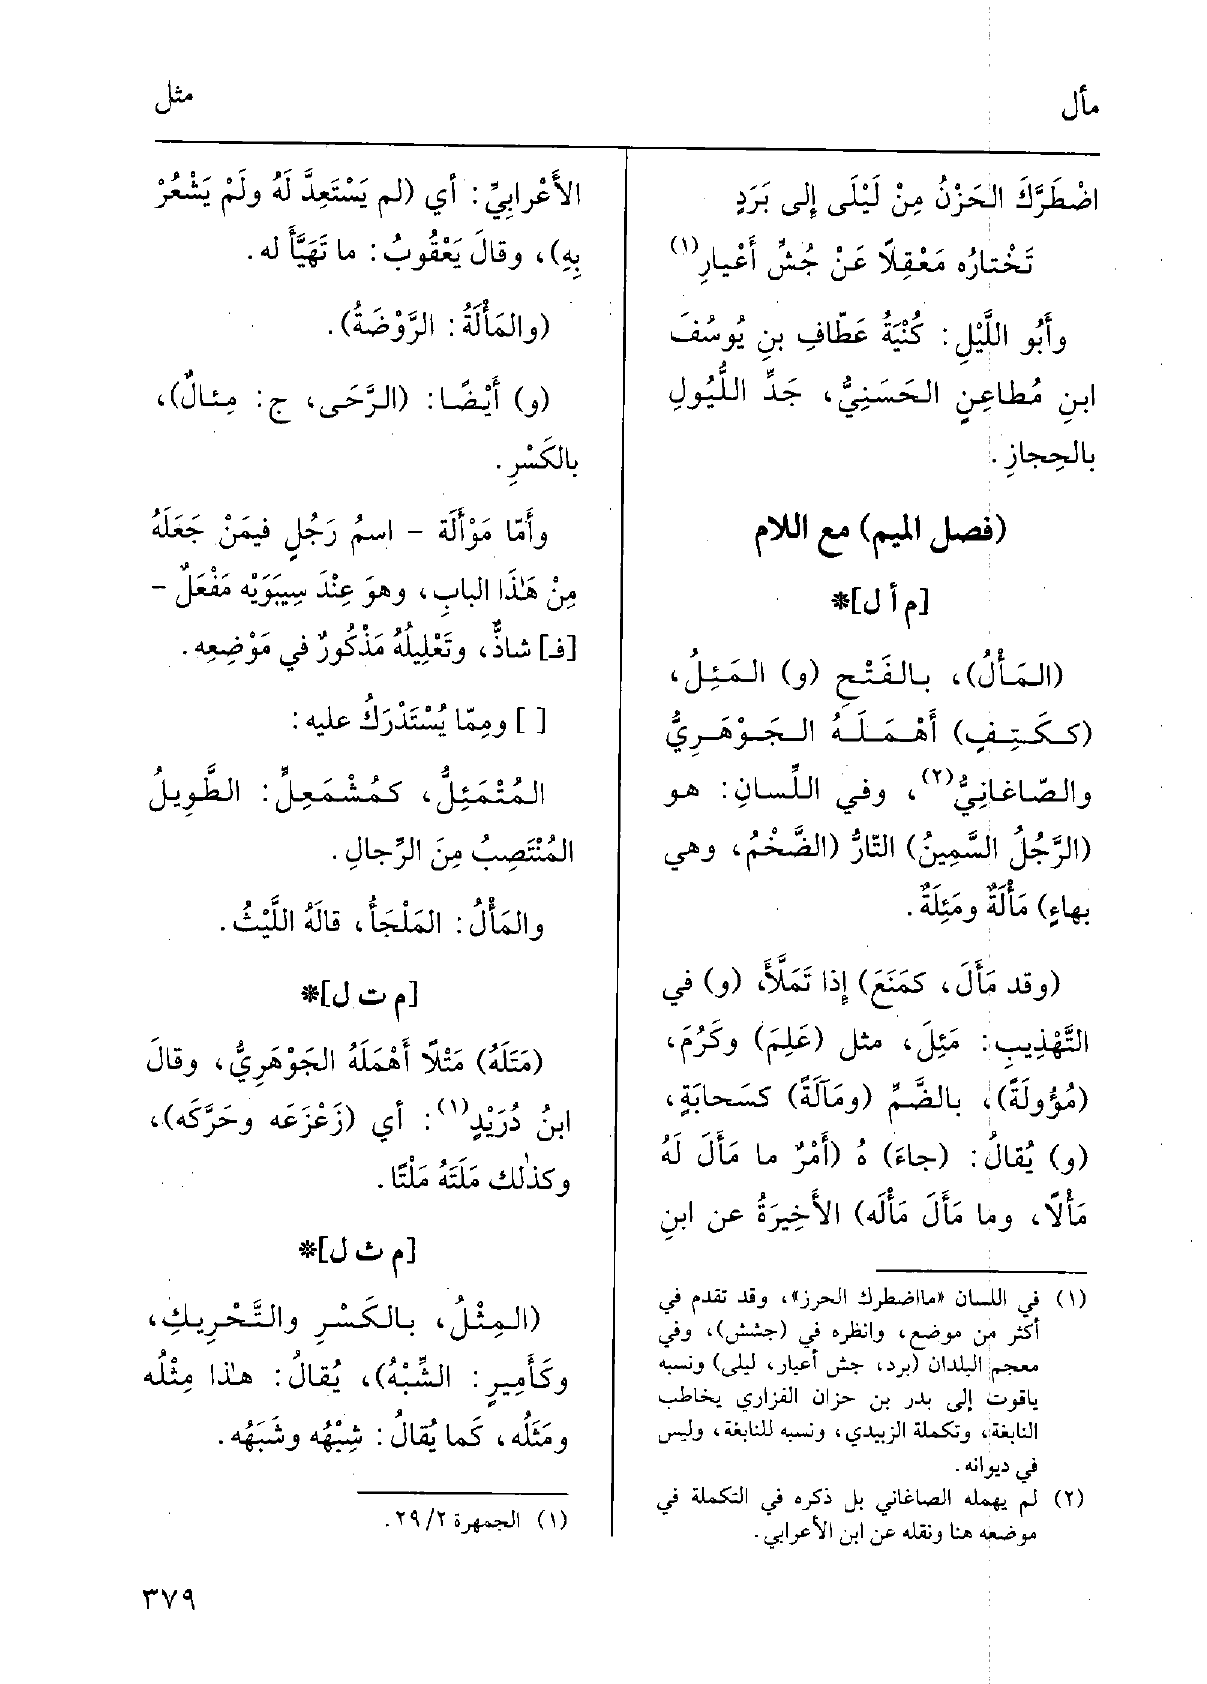 مأل
مثل
اضْطَرَّكَ الحَزْنُ مِنْ لَيْلَى إلى بَرَدٍ
تَخْتارُه مَعْقِلاً عَنْ جُشِّ أَعْيارِ(١)
وأَبُو اللَّيْلِ: كُنْيَةُ عَطّافِ بنِ يُوسُفَ
ابنِ مُطاعِنٍ الحَسَنِيُّ، جَدِّ اللُّيُولِ
بالحِجازِ.
(فصل الميم) مع اللام
[م أ ل]*
(المَأْلُ)، بالفَتْحِ (و) المَئِلُ،
(ككَتِفٍ) أَهْمَلَهُ الجَوْهَرِيُّ
والصّاغانِيُّ(٢)، وفي اللِّسانِ: هو
(الرَّجُلُ السَّمِينُ) التّارُّ (الضَّخْمُ، وهي
بهاءٍ) مَأْلَةٌ ومَئِلَةٌ.
(وقد مَأَلَ، كمَنَعَ) إذا تَمَلَّأَ، (و) في
التَّهْذِيبِ: مَئِلَ، مثل (عَلِمَ) وكَرُمَ،
(مُؤُولَةً)، بالضَّمِّ (ومَآلَةً) كسَحابَةٍ،
(و) يُقالُ: (جاءَ) هُ (أَمْرٌ ما مَأَلَ لَهُ
مَأْلًا، وما مَأَلَ مَأْلَه) الأَخِيرَةُ عن ابنِ
(١) في اللسان «مااضطرك الحرز»، وقد تقدم في
أكثر من موضع، وانظره في (جشش)، وفي
معجم البلدان (برد، جش أعيار، ليلى) ونسبه
ياقوت إلى بدر بن حزان الفزاري يخاطب
النابغة، وتكملة الزبيدي، ونسبه للنابغة، وليس
في ديوانه.
(٢) لم يهمله الصاغاني بل ذكره في التكملة في
موضعه هنا ونقله عن ابن الأعرابي.
الأَعْرابِيِّ: أي (لم يَسْتَعِدَّ لَهُ ولَمْ يَشْعُرْ
بِهِ)، وقالَ يَعْقُوبُ: ما تَهَيَّأَ له.
(والمَأْلَةُ: الرَّوْضَةُ).
(و) أَيْضًا: (الرَّحَى، ج: مِئالٌ)،
بالكَسْرِ.
وأَمّا مَوْأَلَة - اسمُ رَجُلٍ فيمَنْ جَعَلَهُ
مِنْ هَٰذَا البابِ، وهوَ عِنْدَ سِيبَوَيْه مَفْعَلٌ -
[فـ] شاذٌّ، وتَعْلِيلُهُ مَذْكُورٌ في مَوْضِعِه.
[ ] ومِمّا يُسْتَدْرَكُ عليه:
المُتْمَئِلُّ، كمُشْمَعِلٍّ: الطَّوِيلُ
المُنْتَصِبُ مِنَ الرِّجالِ.
والمَأْلُ: المَلْجَأُ، قالَهُ اللَّيْثُ.
[م ت ل]*
(مَتَلَهُ) مَتْلًا أَهْمَلَهُ الجَوْهَرِيُّ، وقالَ
ابنُ دُرَيْدٍ(١): أي (زَعْزَعَه وحَرَّكَه)،
وكذٰلك مَلَتَهُ مَلْتًا.
[م ث ل]*
(المِثْلُ، بالكَسْرِ والتَّحْرِيكِ،
وكَأَمِيرٍ: الشِّبْهُ)، يُقالُ: هٰذا مِثْلُه
ومَثَلُه، كَما يُقالُ: شِبْهُه وشَبَهُه.
(١) الجمهرة ٢٩/٢.
٣٧٩